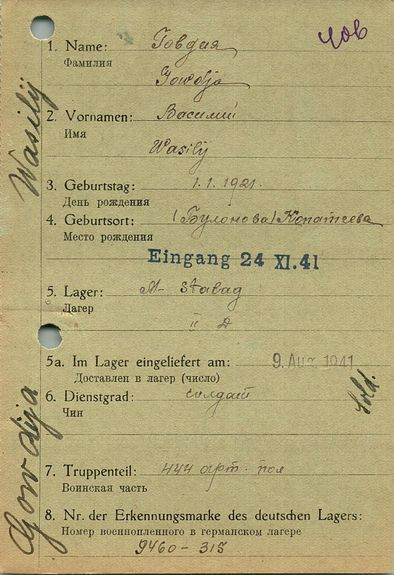 чов
1. Name: Говдия
Фамилия
Gowdja
2. Vornamen: Василий
Имя
Wasilÿ
3. Geburtstag: 1.1.1921.
День рождения
4. Geburtsort:
Место рождения
Eingang 24 XI.41
5. Lager: M- Stalag
Лагер
II D
5a. Im Lager eingeliefert am: 9. Aug. 1941
Доставлен в лагер (число)
6. Dienstgrad: солдат
Чин
Sold.
7. Truppenteil: 444 арт. пол
Воинская часть
8. Nr. der Erkennungsmarke des deutschen Lagers:
Номер военнопленного в германском лагере
9460-315
Gowdja Wasilÿ